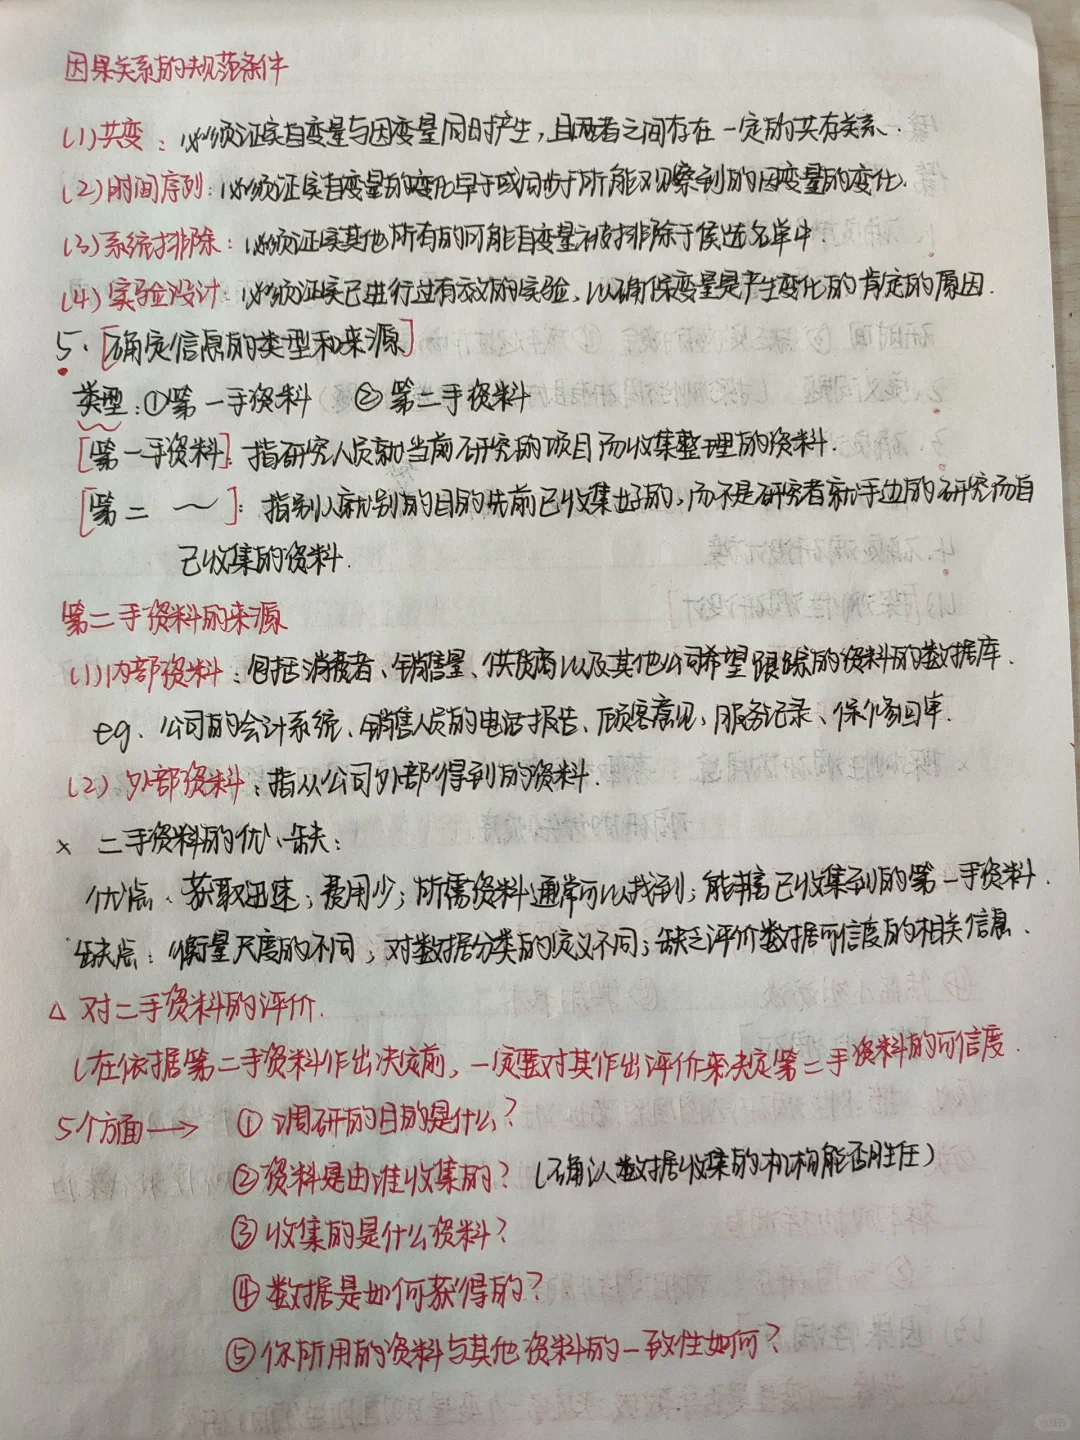 因果关系的规范条件
(1)共变：必须证实自变量与因变量同时产生，且两者之间存在一定的共存关系.
(2)时间序列：必须证实自变量的变化早于或同步于所能观察到的因变量的变化.
(3)系统排除：必须证实其他所有的可能自变量被排除于候选名单中.
(4)实验设计：必须证实已进行过有效的实验，以确保变量是产生变化的肯定的原因.
5.[确定信息的类型和来源]
类型：①第一手资料 ②第二手资料
[第一手资料]：指研究人员就当前研究的项目而收集整理的资料.
[第二 ～]：指别人就别的目的先前已收集好的，而不是研究者就手边的研究而自
己收集的资料.
第二手资料的来源
(1)内部资料：包括消费者、销售量、供货商以及其他公司希望跟踪的资料的数据库.
eg. 公司的会计系统、销售人员的电话报告、顾客意见、服务记录、保修回单.
(2)外部资料：指从公司外部得到的资料.
× 二手资料的优、缺：
优点、获取迅速；费用少；所需资料通常可以找到；能丰富已收集到的第一手资料.
缺点：衡量尺度的不同；对数据分类的定义不同；缺乏评价数据可信度的相关信息.
△ 对二手资料的评价.
(在依据第二手资料作出决定前，一定要对其作出评价来决定第二手资料的可信度.
5个方面→ ①调研的目的是什么？
②资料是由谁收集的？(确认数据收集的机构能否胜任)
③收集的是什么资料？
④数据是如何获得的？
⑤你所用的资料与其他资料的一致性如何？